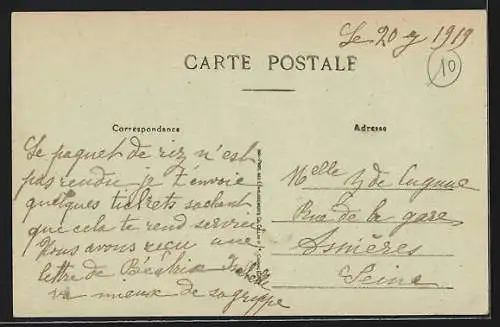 Le 20 9 1919
10
CARTE POSTALE
Correspondance
Adresse
Le paquet de riz n'est
pas rendu je t'envoie
quelques tickets sachant
que cela te rend service
Nous avons reçu une
lettre de Béatrix Isabelle
va mieux de sa grippe
Melle Y de Cugnac
Rue de la gare
Asnières
Seine